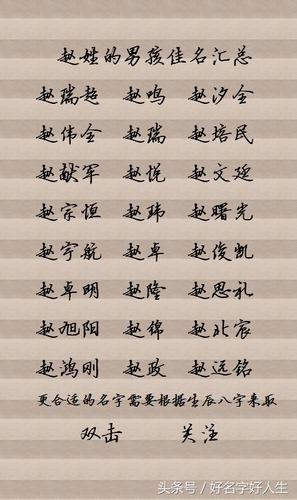 赵姓的男孩佳名汇总
赵瑞超 赵鸣 赵汐全
赵伟全 赵瑞 赵培民
赵献军 赵悦 赵文延
赵宗恒 赵玮 赵曙光
赵宇航 赵卓 赵俊凯
赵卓明 赵隆 赵思礼
赵旭阳 赵锦 赵北宸
赵鸿刚 赵政 赵远铭
更合适的名字需要根据生辰八字来取
双击 关注
头条号/好名字好人生